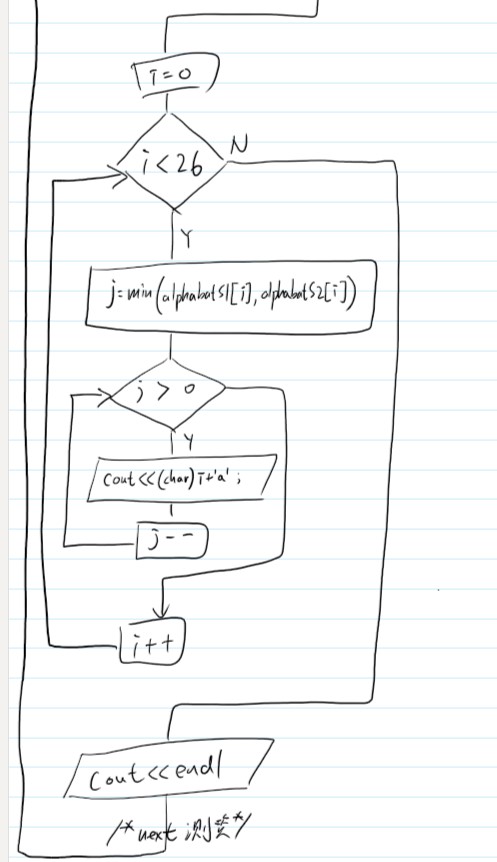 i=0
i<26
N
Y
j=min(alphabatS1[i],alphabatS2[i])
j>0
Y
cout<<(char)i+'a';
j--
i++
cout<<endl
/*next 測資*/